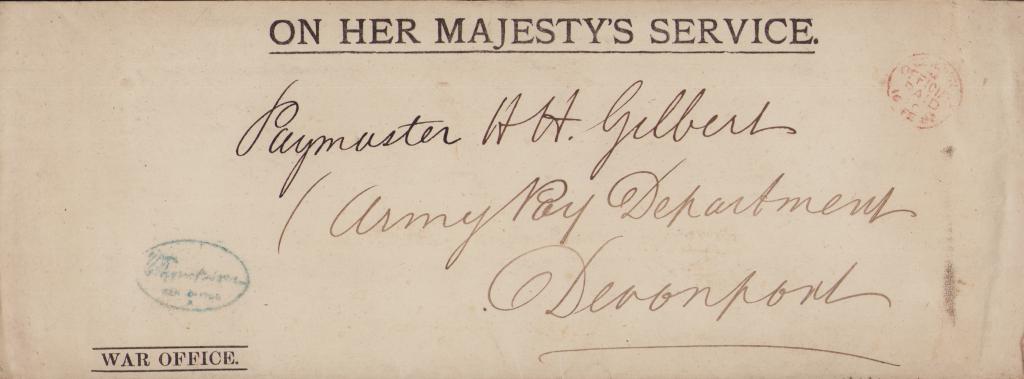 ON HER MAJESTY'S SERVICE.
Paymaster H H. Gilbert
(Army Pay Department
Devonport
WAR OFFICE.